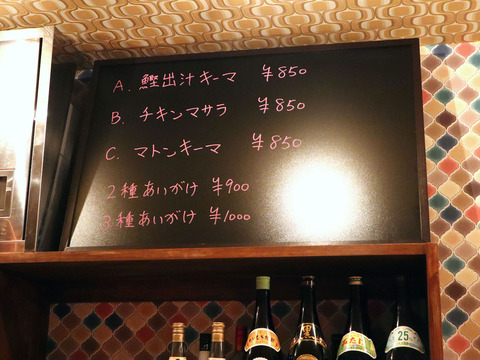 A. 鰹出汁キーマ ¥850
B. チキンマサラ ¥850
C. マトンキーマ ¥850
2種あいがけ ¥900
3種あいがけ ¥1000
25